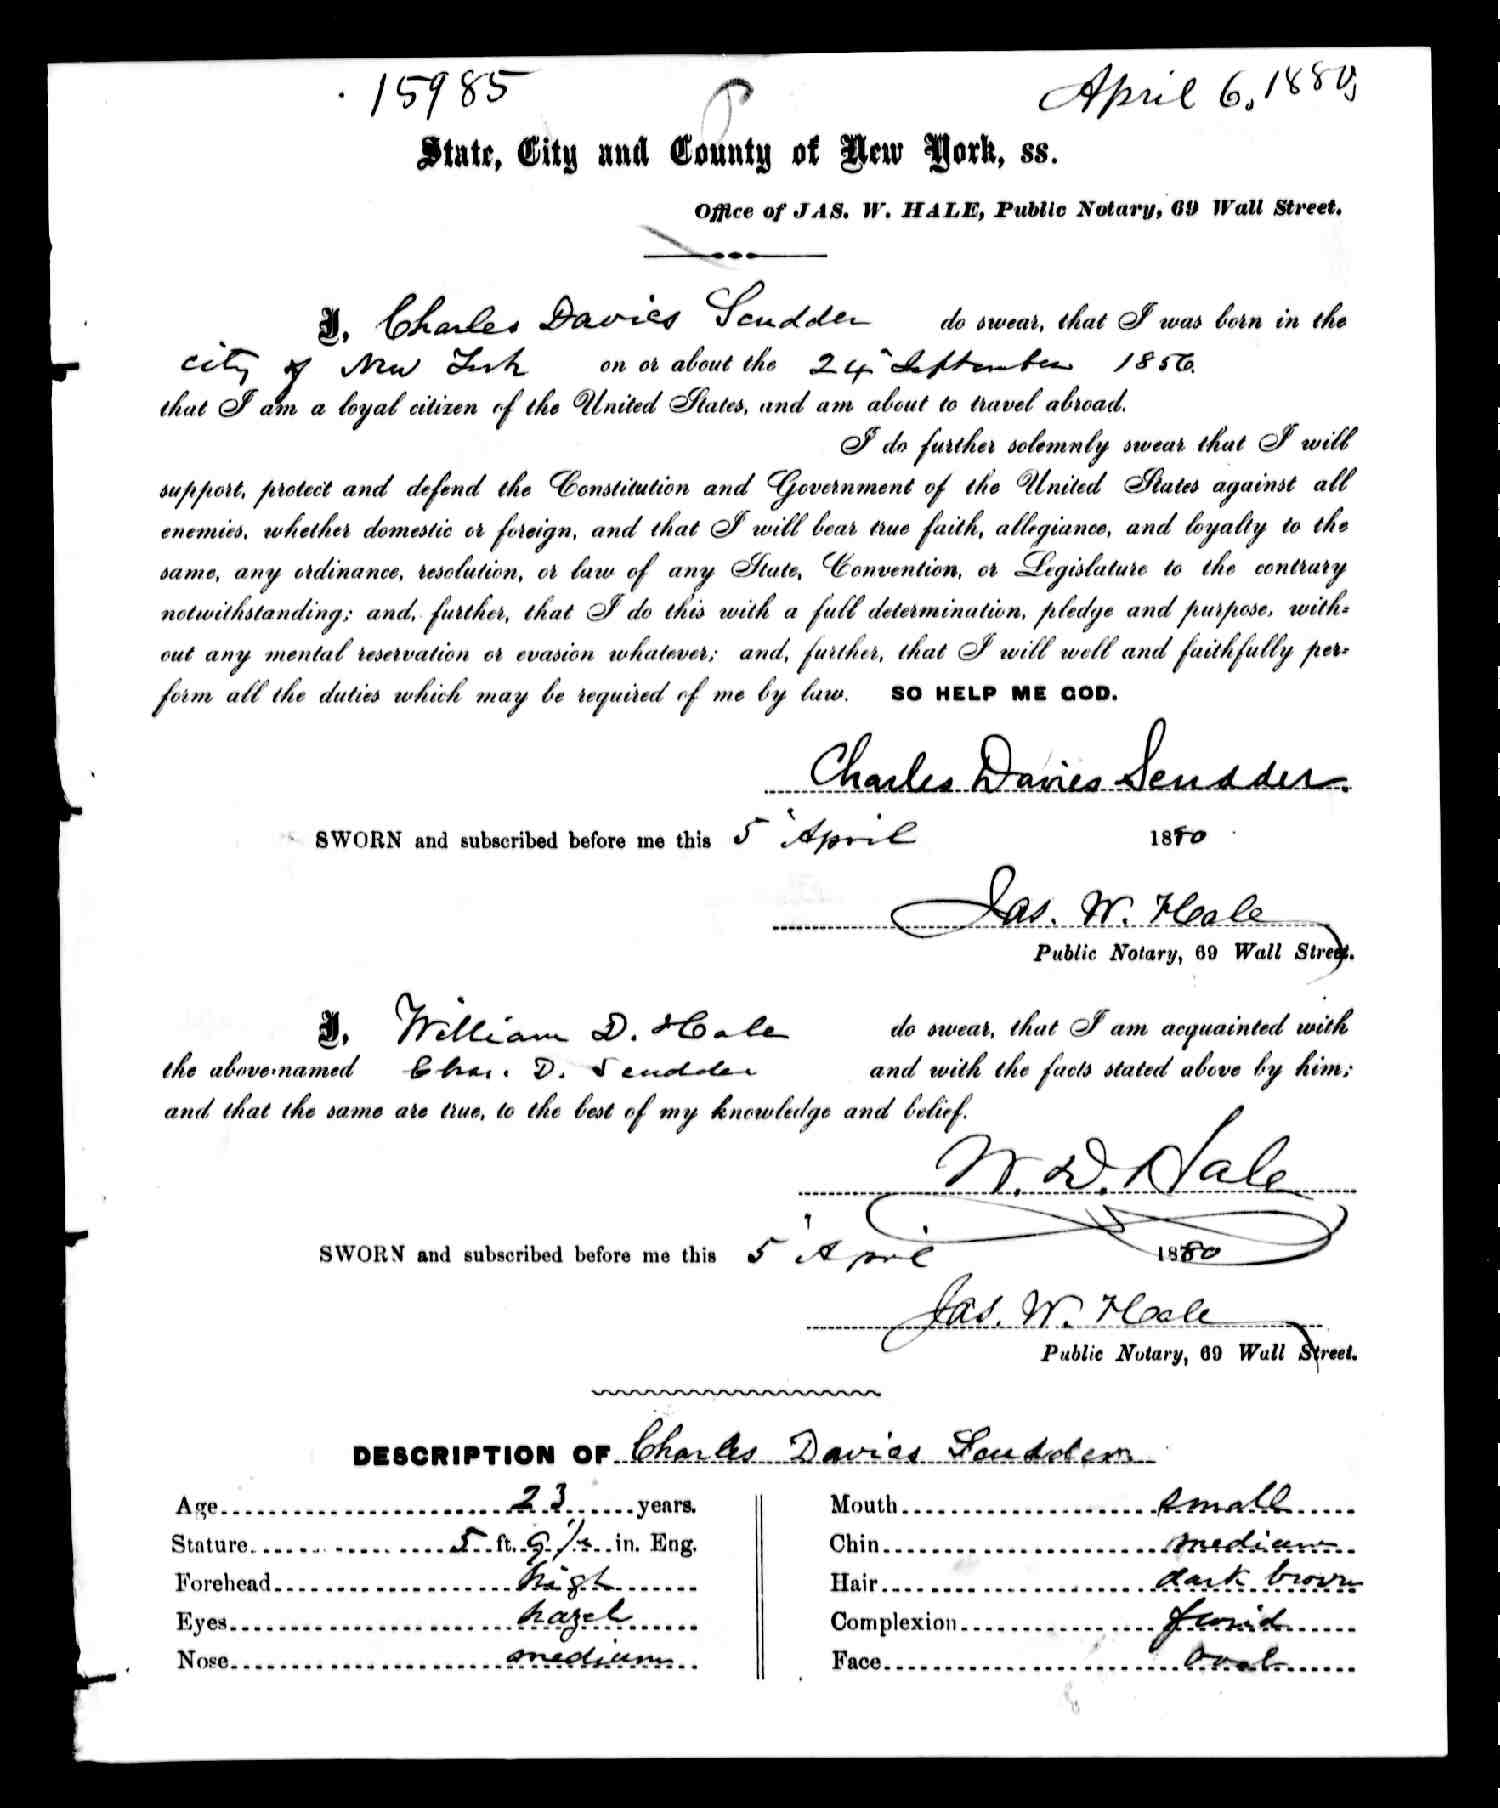 15985
April 6, 1880,
State, City and County of New York, ss.
Office of JAS. W. HALE, Public Notary, 69 Wall Street.
I, Charles Davies Scudder do swear, that I was born in the
city of New York on or about the 24" September 1856.
that I am a loyal citizen of the United States, and am about to travel abroad.
I do further solemnly swear that I will
support, protect and defend the Constitution and Government of the United States against all
enemies, whether domestic or foreign, and that I will bear true faith, allegiance, and loyalty to the
same, any ordinance, resolution, or law of any State, Convention, or Legislature to the contrary
notwithstanding; and, further, that I do this with a full determination, pledge and purpose, with-
out any mental reservation or evasion whatever; and, further, that I will well and faithfully per-
form all the duties which may be required of me by law. SO HELP ME GOD.
Charles Davies Scudder.
SWORN and subscribed before me this 5 April 1880
Jas. W. Hale
Public Notary, 69 Wall Street.
I, William D. Hale do swear, that I am acquainted with
the above-named Chas. D. Scudder and with the facts stated above by him;
and that the same are true, to the best of my knowledge and belief.
W. D. Hale
SWORN and subscribed before me this 5 April 1880
Jas. W. Hale
Public Notary, 69 Wall Street.
DESCRIPTION OF Charles Davies Scudder
Age 23 years. Mouth small
Stature 5 ft. 9 1/2 in. Eng. Chin medium
Forehead high Hair dark brown
Eyes hazel Complexion florid
Nose medium Face oval